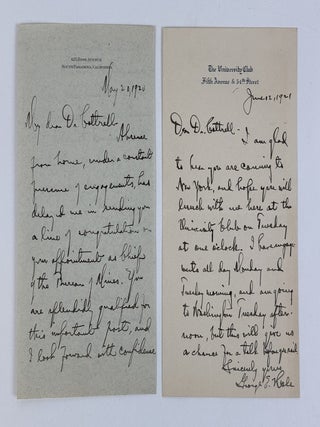 South Pasadena, California
May 22, 1920
My dear Dr. Cottrell:
Absence
from home, under a constant
pressure of engagements, has
delayed me in sending you
a line of congratulation on
your appointment as Chief
of the Bureau of Mines. You
are splendidly qualified for
this important post, and
I look forward with confidence
The University Club
Fifth Avenue & 54th Street
June 12, 1921
Dear Dr. Cottrell:
I am glad
to hear you are coming to
New York, and hope you will
lunch with me here at the
University Club on Tuesday
at one o'clock. I have engage-
ments all day Monday and
Tuesday morning, and am going
to Washington Tuesday after-
noon, but this will give us
a chance for a talk
Sincerely yours,
George E. Hale